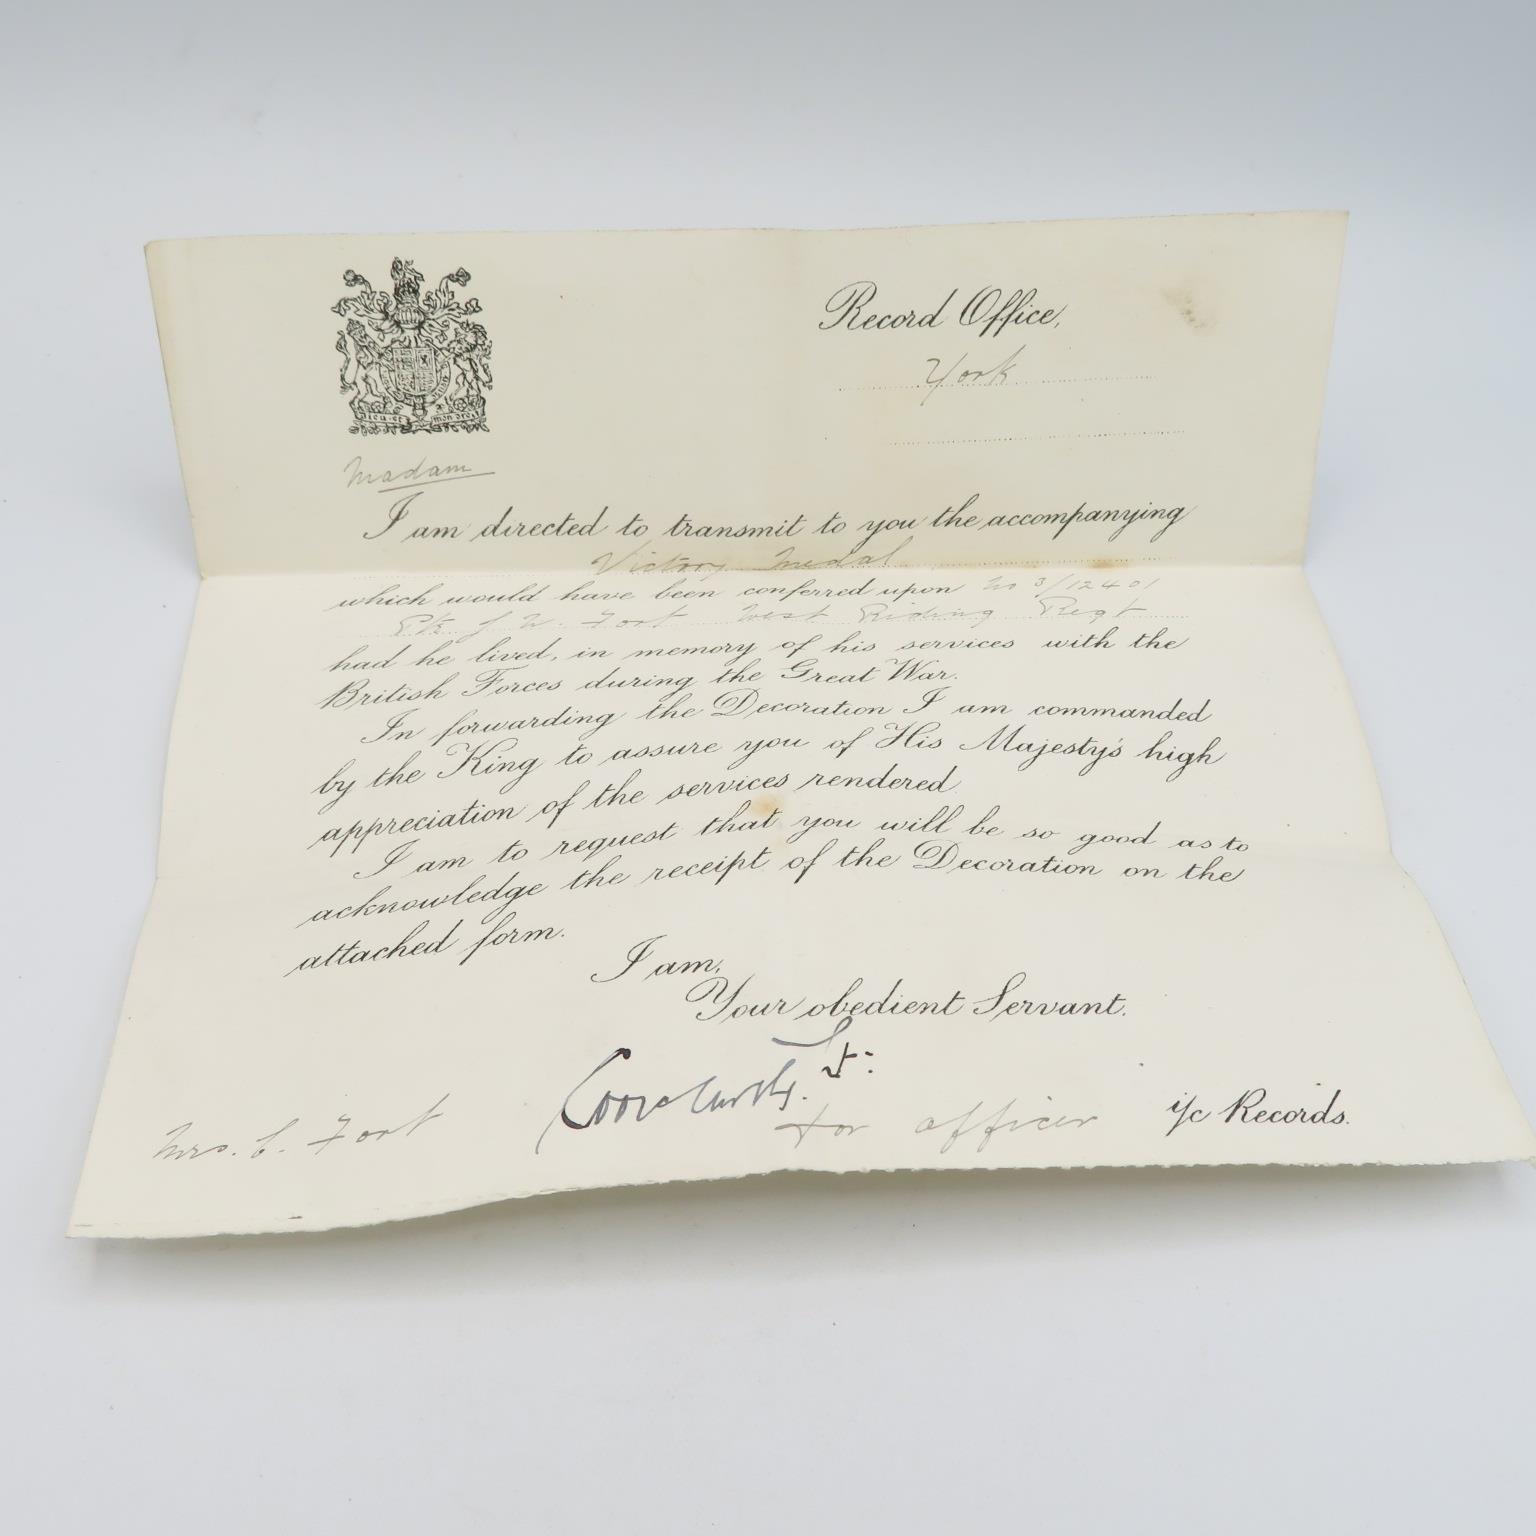 Dieu et mon droit
Record Office,
York
Madam
I am directed to transmit to you the accompanying
Victory Medal
which would have been conferred upon No 3/12401
Pte J. W. Fort West Riding Regt
had he lived, in memory of his services with the
British Forces during the Great War.
In forwarding the Decoration I am commanded
by the King to assure you of His Majesty's high
appreciation of the services rendered.
I am to request that you will be so good as to
acknowledge the receipt of the Decoration on the
attached form.
I am,
Your obedient Servant.
Lt:
for officer i/c Records.
Mrs. C. Fort